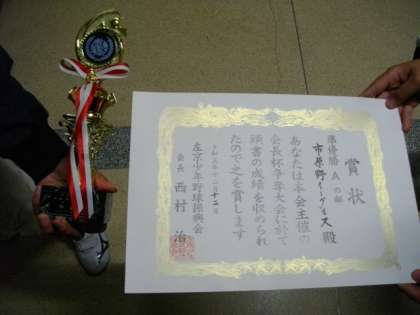 賞状
準優勝 Aの部
市原野イーグルス殿
あなたは本会主催の
会長杯争奪大会に於て
頭書の成績を収められ
たので之を賞します
令和五年十二月十二日
左京少年野球振興会
会長 西村 治